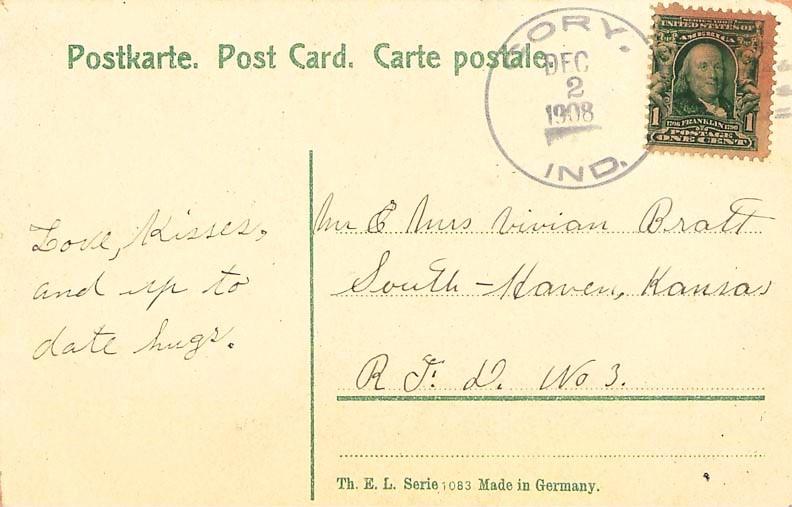 Postkarte. Post Card. Carte postale.
CORY.
DEC
2
1908
IND.
SERIES 1902
UNITED STATES OF
AMERICA
1706 FRANKLIN 1790
1 1
POSTAGE
ONE CENT
Love, Kisses,
and up to
date hugs.
Mr & Mrs Vivian Bratt
South-Haven, Kansas
R. F. D. No 3.
Th. E. L. Serie 1083 Made in Germany.